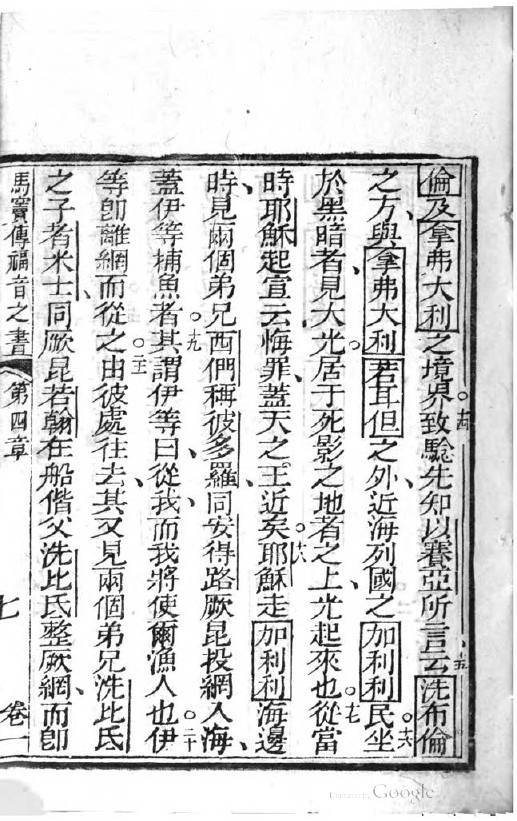 倫及拿弗大利之境界致騐先知以賽亞所言云洗布倫
之方與拿弗大利若耳但之外近海列國之加利利民坐
於黑暗者見大光居于死影之地者之上光起來也從當
時耶穌起宣云悔罪蓋天之王近矣耶穌走加利利海邊
時見兩個弟兄西們稱彼多羅同安得路厥昆投網入海
蓋伊等捕魚者其謂伊等曰從我而我將使爾漁人也伊
等卽離網而從之由彼處往去其又見兩個弟兄洗比氏
之子者米士同厥昆若翰在船偕父洗比氏整厥網而卽
馬竇傳福音之書 第四章 七 卷一
Google